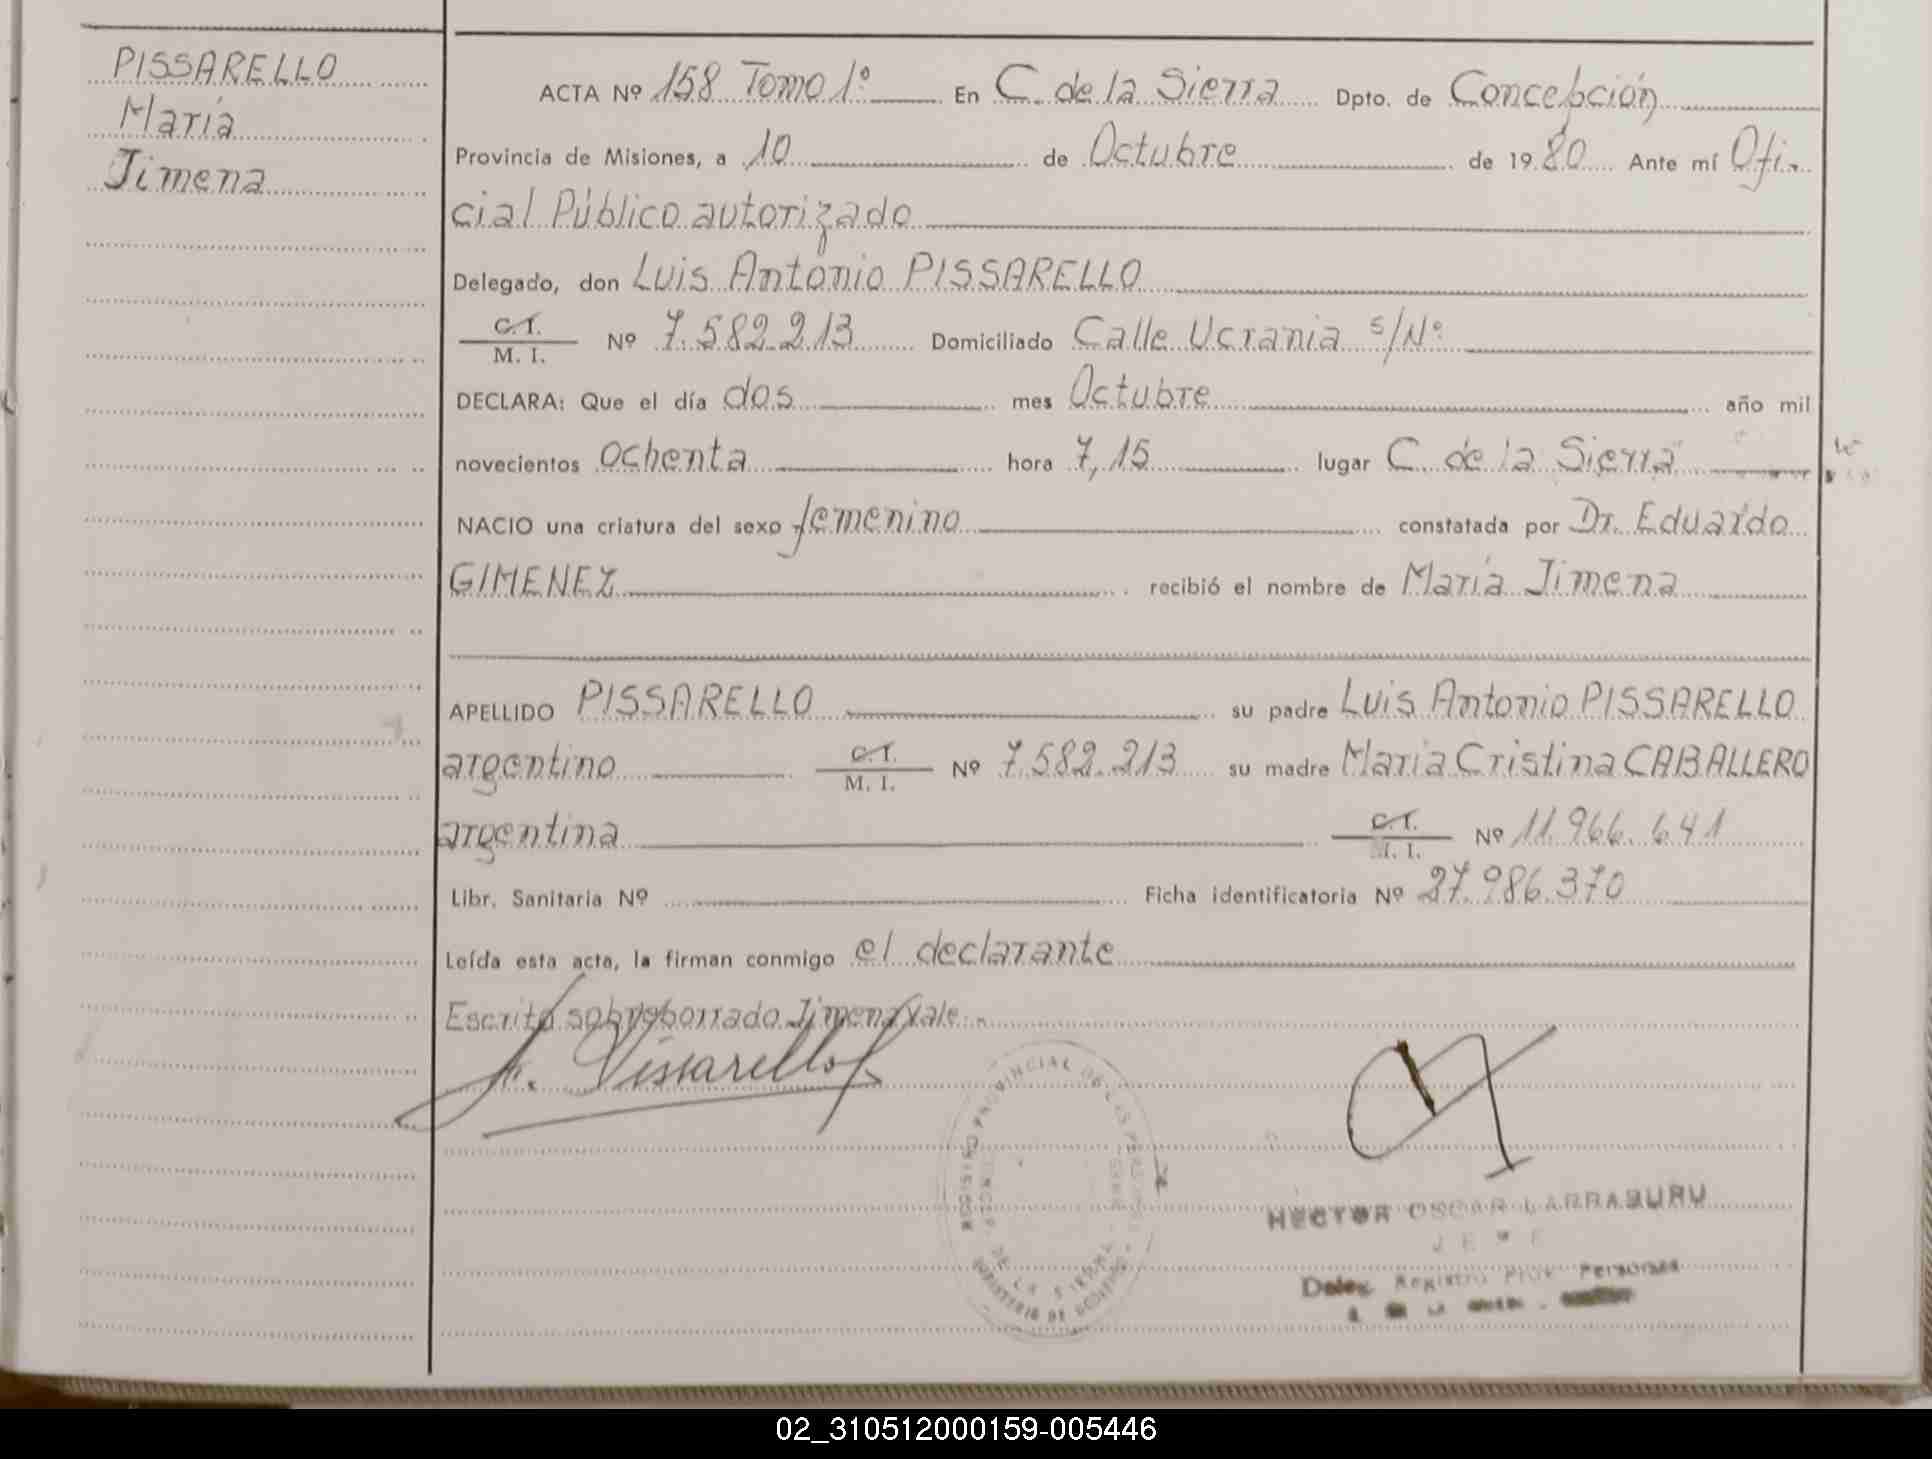 PISSARELLO
María
Jimena
ACTA Nº 158 Tomo 1º En C. de la Sierra Dpto. de Concepción
Provincia de Misiones, a 10 de Octubre de 1980 Ante mí Ofi-
cial Público autorizado
Delegado, don Luis António PISSARELLO
C. I.
M. I. Nº 7.582.213 Domiciliado Calle Ucrania s/Nº
DECLARA: Que el día dos mes Octubre año mil
novecientos ochenta hora 7,15 lugar C. de la Sierra
NACIO una criatura del sexo femenino constatada por Dr. Eduardo
GIMENEZ recibió el nombre de María Jimena
APELLIDO PISSARELLO su padre Luis Antonio PISSARELLO
argentino C. I.
M. I. Nº 7.582.213 su madre María Cristina CABALLERO
argentina C. I.
M. I. Nº 11.966.641
Libr. Sanitaria Nº Ficha identificatoria Nº 27.986.370
Leída esta acta, la firman conmigo el declarante
Escrito sobreborrado Jimena vale.-
Pissarello
REGISTRO PROVINCIAL DE LAS PERSONAS
MINISTERIO DE GOBIERNO
DE LA SIERRA
HECTOR OSCAR LARRABURU
JEFE
Deleg. Registro Prov. Personas
02_310512000159-005446